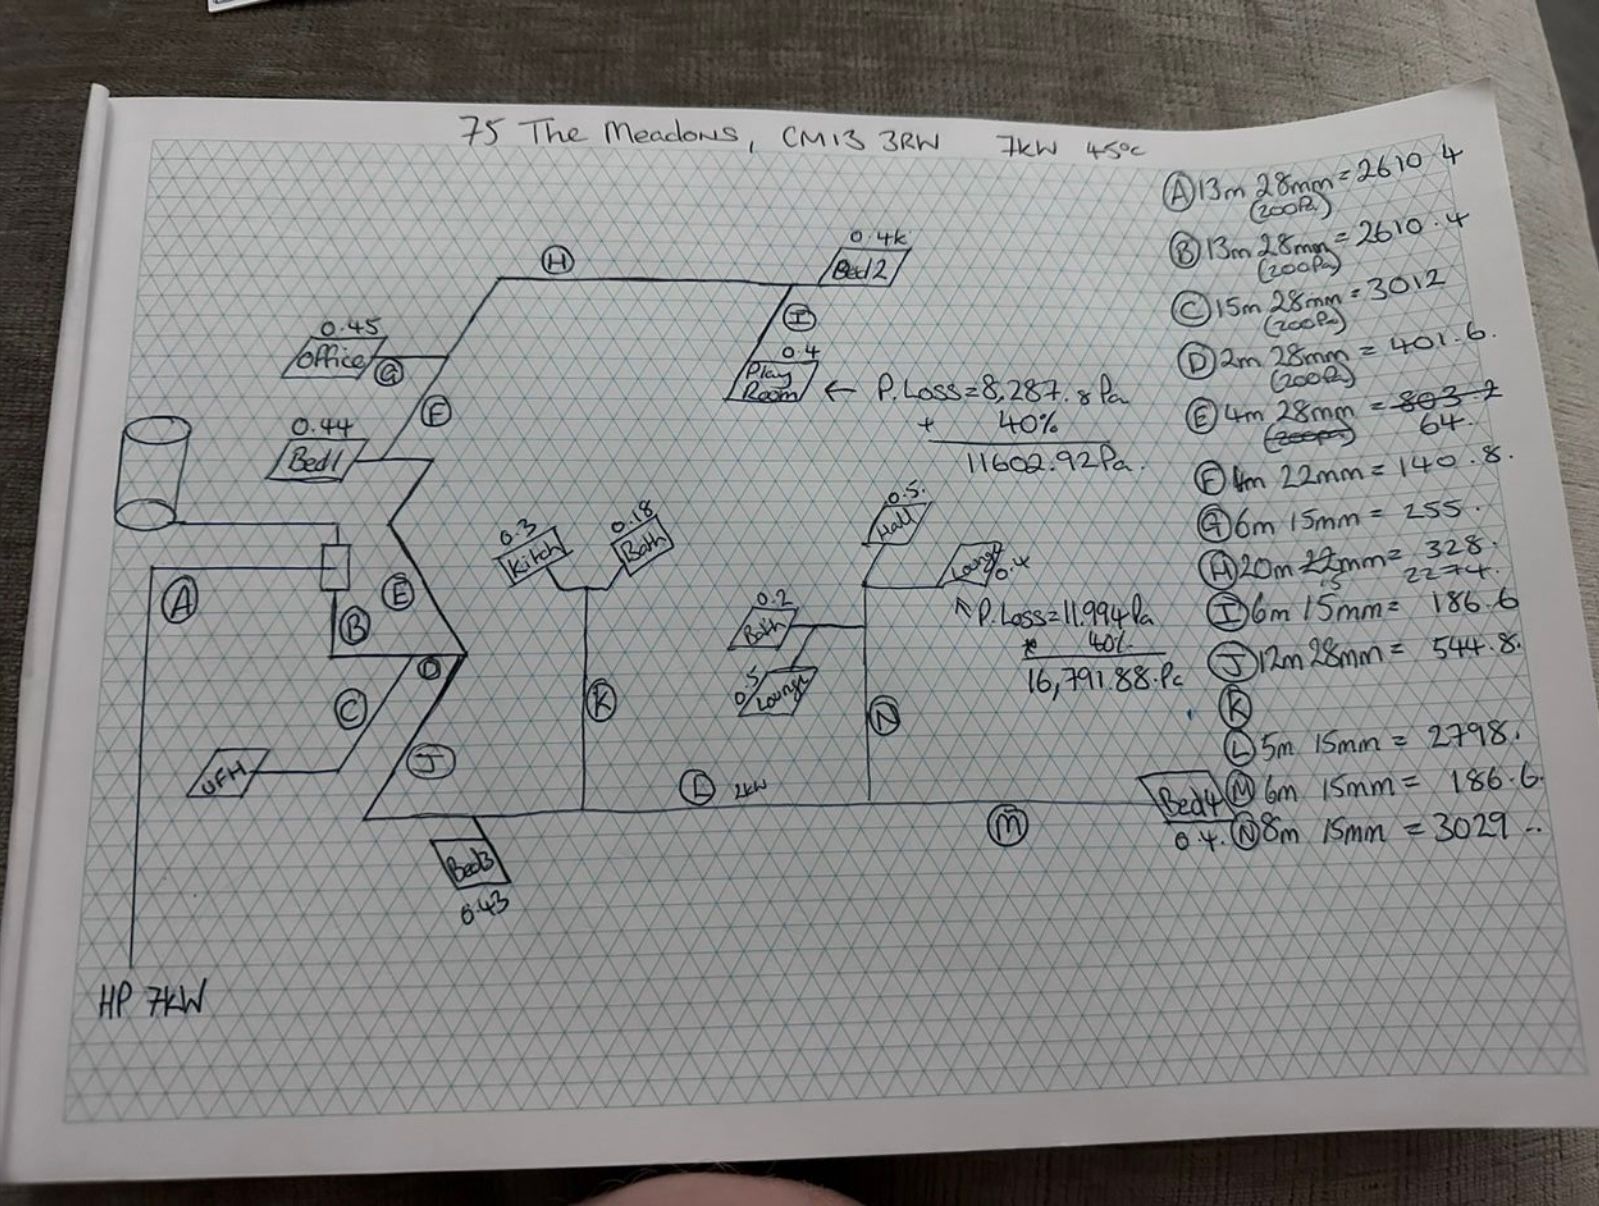 75 The Meadows, CM13 3RW 7kW 45°c
Ⓐ 13m 28mm = 2610.4
(200Pa)
Ⓑ 13m 28mm = 2610.4
(200Pa)
Ⓒ 15m 28mm = 3012
(200Pa)
Ⓓ 2m 28mm = 401.6.
(200Pa)
Ⓔ 4m 28mm = 803.2
(200Pa) 64.
Ⓕ 4m 22mm = 140.8.
Ⓖ 6m 15mm = 255.
Ⓗ 20m 22mm = 328.
15 2274.
Ⓘ 6m 15mm = 186.6
Ⓙ 12m 28mm = 544.8.
Ⓚ
Ⓛ 5m 15mm = 2798.
Ⓜ 6m 15mm = 186.6.
Ⓝ 8m 15mm = 3029 ..
Ⓗ
0.4k
Bed2
Ⓘ
0.45
Office
Ⓖ
0.4
Play
Room
← P.Loss=8,287.8Pa
+ 40%
11602.92Pa.
Ⓕ
0.44
Bed1
0.3
Kitch
0.18
Bath
0.5.
Hall
Lounge
0.4
P.Loss=11.994Pa
40%
16,791.88.Pa
Ⓐ
Ⓔ
Ⓑ
0.2
Bath
0.5
Lounge
Ⓓ
Ⓒ
Ⓚ
Ⓝ
UFH
Ⓙ
Ⓛ 2kW
Bed4
0.4.
Ⓜ
Bed3
0.43
HP 7kW